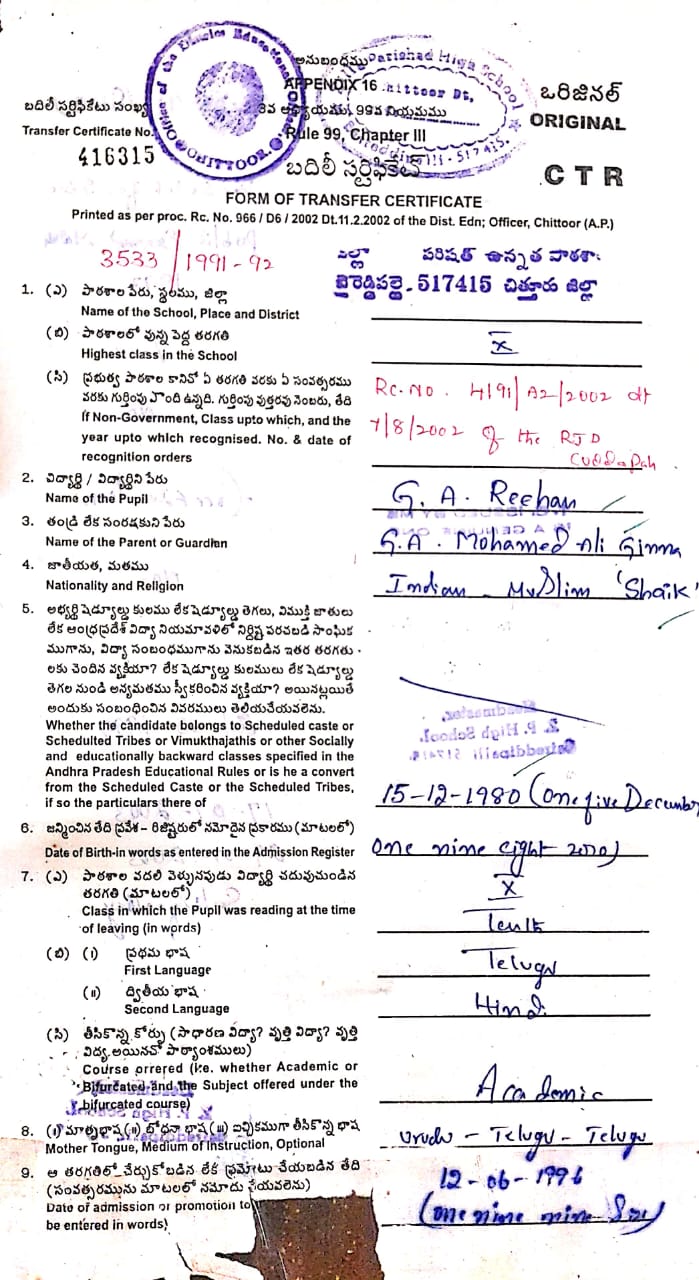 Office of the District Educational
CHITTOOR
అనుబంధము
Parishad High School
APPENDIX 16
Chittoor Dt,
ఒరిజినల్
బదిలీ సర్టిఫికేటు సంఖ్య
3వ అధ్యాయము, 99వ నియమము
Transfer Certificate No.
Rule 99, Chapter III
ORIGINAL
517415
416315
బదిలీ సర్టిఫికేట్
C T R
FORM OF TRANSFER CERTIFICATE
Printed as per proc. Rc. No. 966 / D6 / 2002 Dt.11.2.2002 of the Dist. Edn; Officer, Chittoor (A.P.)
3533/1991-92
జిల్లా పరిషత్ ఉన్నత పాఠశాల
517415 చిత్తూరు జిల్లా
1. (ఎ) పాఠశాల పేరు, స్థలము, జిల్లా
Name of the School, Place and District
(బి) పాఠశాలలో వున్న పెద్ద తరగతి
Highest class in the School
X
(సి) ప్రభుత్వ పాఠశాల కానిచో ఏ తరగతి వరకు ఏ సంవత్సరము
వరకు గుర్తింపు పొంది ఉన్నది. గుర్తింపు పుత్తరవు నెంబరు, తేది
If Non-Government, Class upto which, and the
year upto which recognised. No. & date of
recognition orders
Rc. No. 4191/A2/2002 dt
7/8/2002 of the RJD
Cuddapah.
2. విద్యార్థి / విద్యార్థిని పేరు
Name of the Pupil
G. A. Reehan
3. తండ్రి లేక సంరక్షకుని పేరు
Name of the Parent or Guardian
G.A. Mohamed Ali Ginna
4. జాతీయత, మతము
Nationality and Religion
Indian - Muslim 'Shaik'
5. అభ్యర్థి షెడ్యూల్డు కులము లేక షెడ్యూల్డు తెగలు, విముక్తి జాతులు
లేక ఆంధ్రప్రదేశ్ విద్యా నియమావళిలో నిర్దిష్ట పరచబడి సాంఘిక
ముగాను, విద్యా సంబంధముగాను వెనుకబడిన ఇతర తరగతు
లకు చెందిన వ్యక్తియా? లేక షెడ్యూల్డు కులములు లేక షెడ్యూల్డు
తెగల నుండి అన్యమతము స్వీకరించిన వ్యక్తియా? అయినట్లయితే
అందుకు సంబంధించిన వివరములు తెలియచేయవలెను.
Whether the candidate belongs to Scheduled caste or
Schedulted Tribes or Vimukthajathis or other Socially
and educationally backward classes specified in the
Andhra Pradesh Educational Rules or is he a convert
from the Scheduled Caste or the Scheduled Tribes,
if so the particulars there of
Headmaster,
Z. P. High School,
6. జన్మించిన తేది ప్రవేశ - రిజిష్టరులో నమోదైన ప్రకారము (మాటలలో)
Date of Birth-in words as entered in the Admission Register
15-12-1980 (One five December
One nine eight zero)
7. (ఎ) పాఠశాల వదలి వెళ్ళునపుడు విద్యార్థి చదువుచుండిన
తరగతి (మాటలలో)
Class in which the Pupil was reading at the time
of leaving (in words)
X
Tenth
(బి) (i) ప్రథమ భాష
First Language
Telugu
(ii) ద్వితీయ భాష
Second Language
Hindi
(సి) తీసికొన్న కోర్సు (సాధారణ విద్యా? వృత్తి విద్యా? వృత్తి
విద్య అయినచో పాఠ్యాంశములు)
Course orrered (ie. whether Academic or
Bifurcated and the Subject offered under the
bifurcated course)
Academic
8. (i) మాతృభాష (ii) బోధనా భాష (iii) ఐచ్ఛికముగా తీసికొన్న భాష
Mother Tongue, Medium of Instruction, Optional
Urudu - Telugu - Telugu
9. ఆ తరగతిలో చేర్చుకోబడిన లేక ప్రమోటు చేయబడిన తేది
(సంవత్సరమును మాటలలో నమోదు చేయవలెను)
Date of admission or promotion to
be entered in words)
12-06-1996
(one nine nine Six)